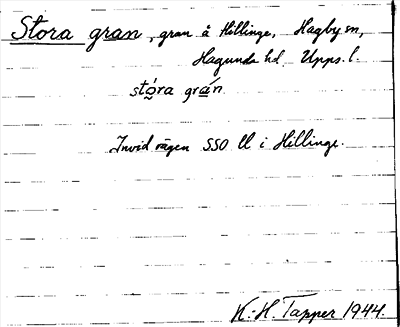 Stora gran, gran å Hillinge, Hagby sn,
Hagunda hd. Upps. l.
stó̰ra grán
Invid vägen SSO ll i Hillinge.
K.-H. Tapper 1944.